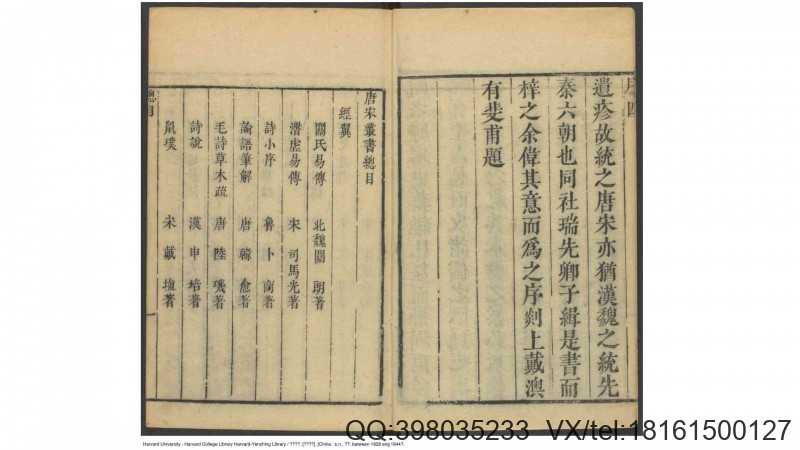 序 四
遺疹故統之唐宋亦猶漢魏之統先
秦六朝也同社瑞先卿子緝是書而
梓之余偉其意而爲之序剡上戴澳
有斐甫題
唐宋叢書總目
經翼
關氏易傳 北魏關 朗著
潛虛易傳 宋 司馬光著
詩小序 魯 卜 商著
論語筆解 唐 韓 愈著
毛詩草木疏 唐 陸 璣著
詩說 漢 申 培著
鼠璞 宋 戴 埴著
總目
Harvard University - Harvard College Library Harvard-Yenching Library / ???? :[????]. [China : s.n., ??, between 1628 and 1644?.
QQ:398035233 VX/tel:18161500127